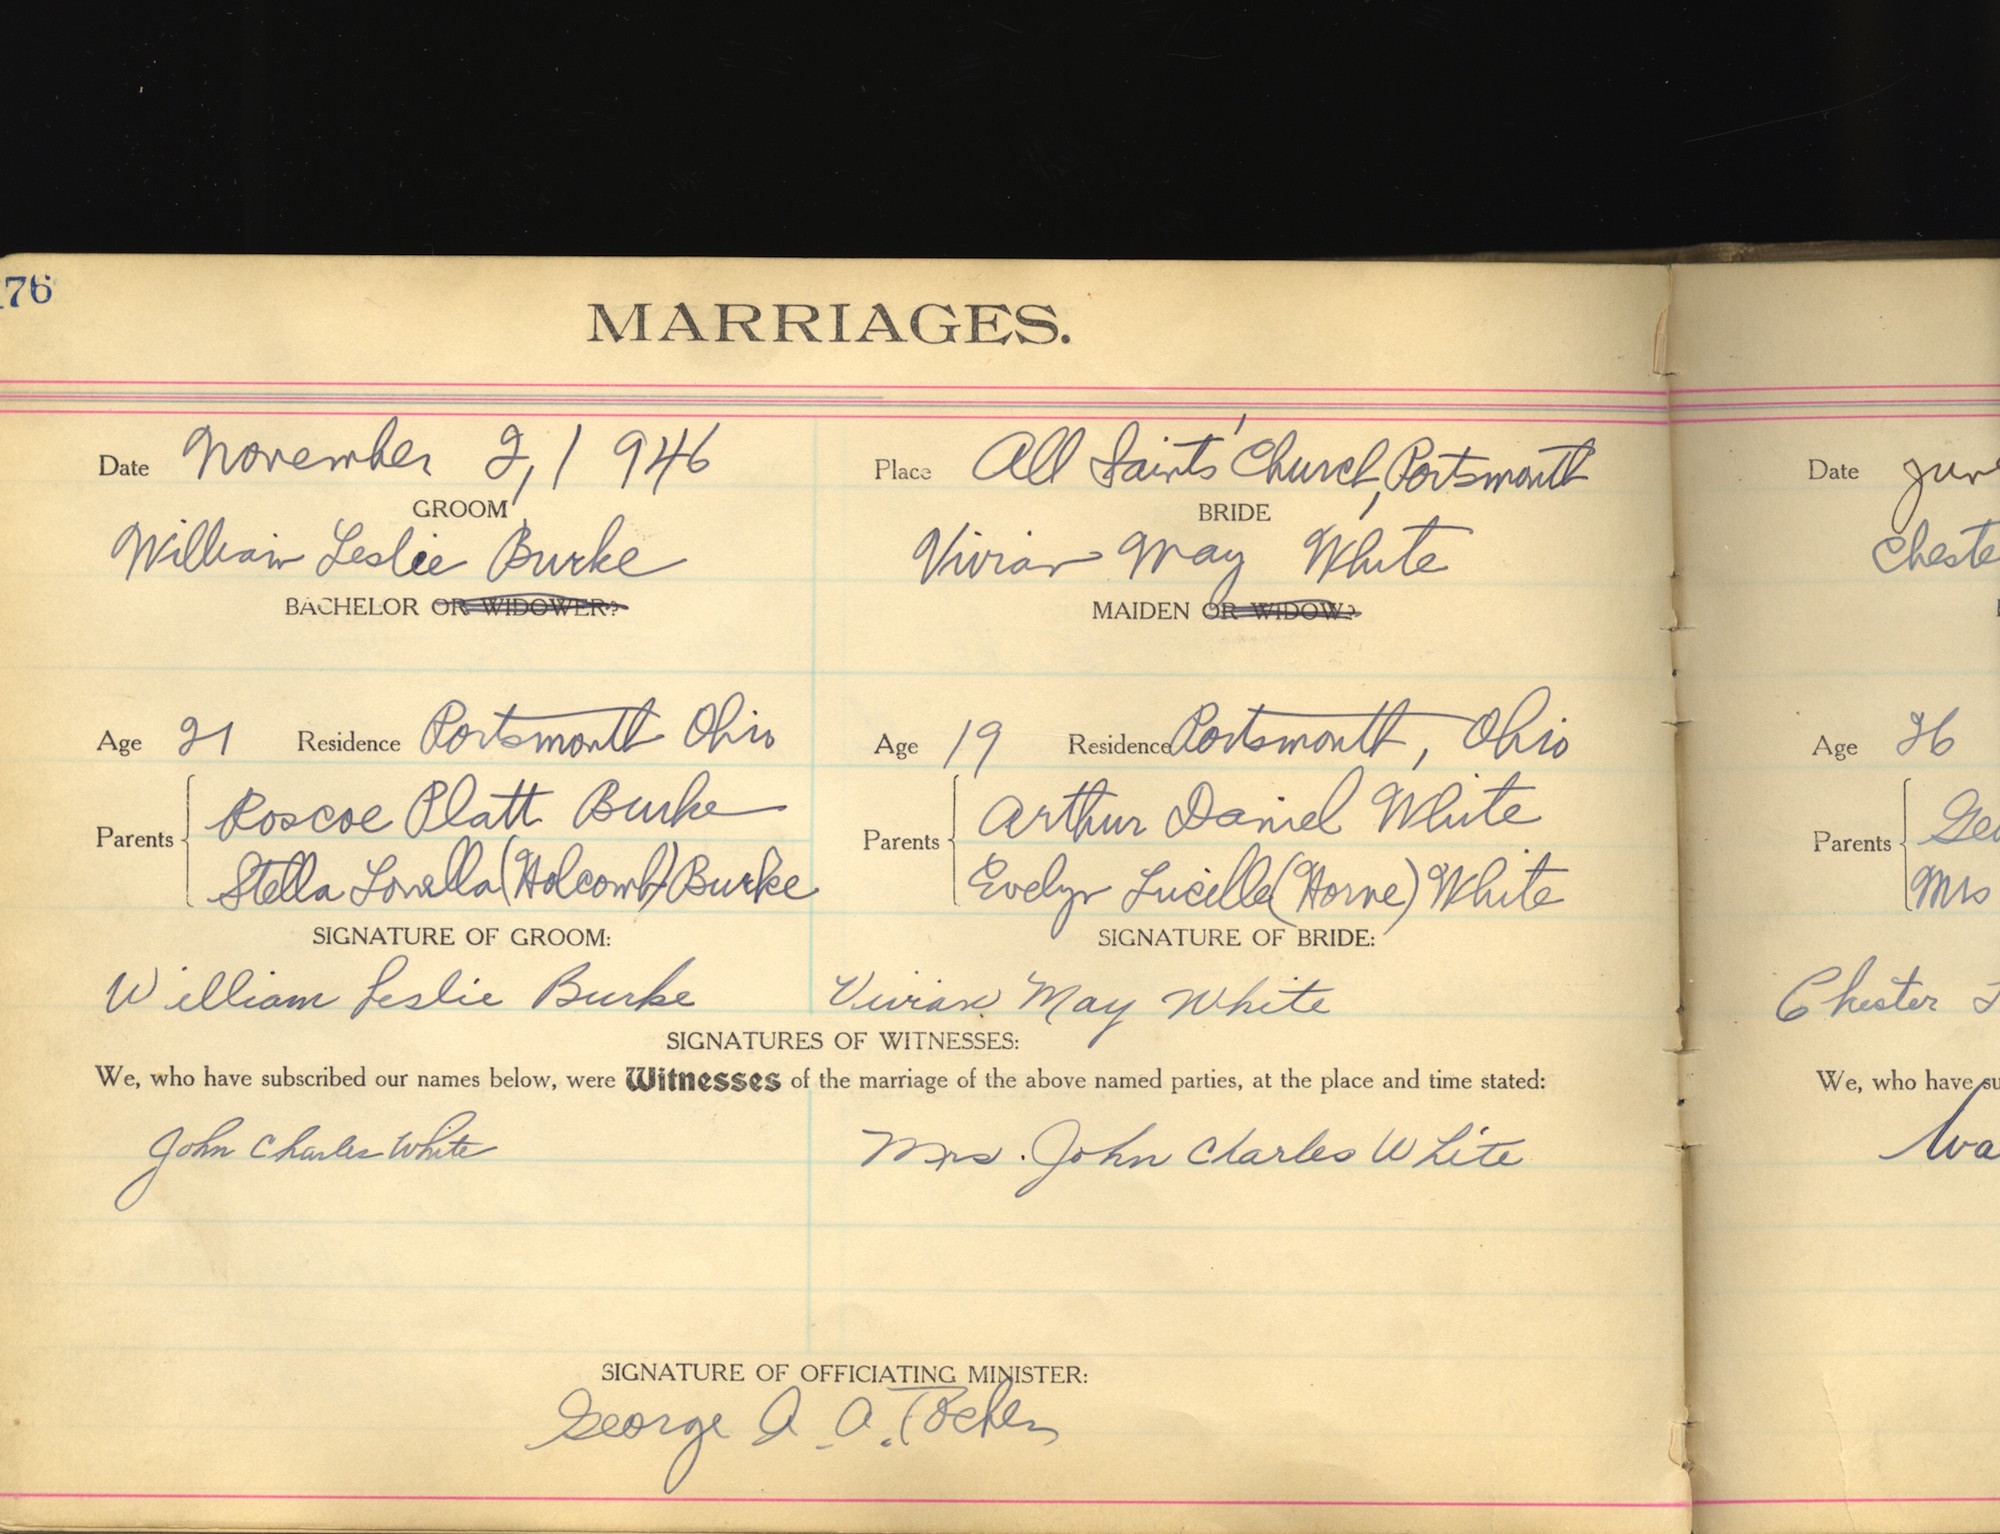 176
MARRIAGES.
Date November 2, 1946 Place All Saints' Church, Portsmouth
GROOM BRIDE
William Leslie Burke Vivian May White
BACHELOR OR WIDOWER? MAIDEN OR WIDOW?
Age 21 Residence Portsmouth Ohio Age 19 Residence Portsmouth, Ohio
Parents Roscoe Platt Burke Parents Arthur Daniel White
Stella Lovella (Holcomb) Burke Evelyn Lucille (Horne) White
SIGNATURE OF GROOM: SIGNATURE OF BRIDE:
William Leslie Burke Vivian May White
SIGNATURES OF WITNESSES:
We, who have subscribed our names below, were Witnesses of the marriage of the above named parties, at the place and time stated:
John Charles White Mrs. John Charles White
SIGNATURE OF OFFICIATING MINISTER:
George
Date June
Chester
Age 26
Parents
Mrs
Chester
We, who have su